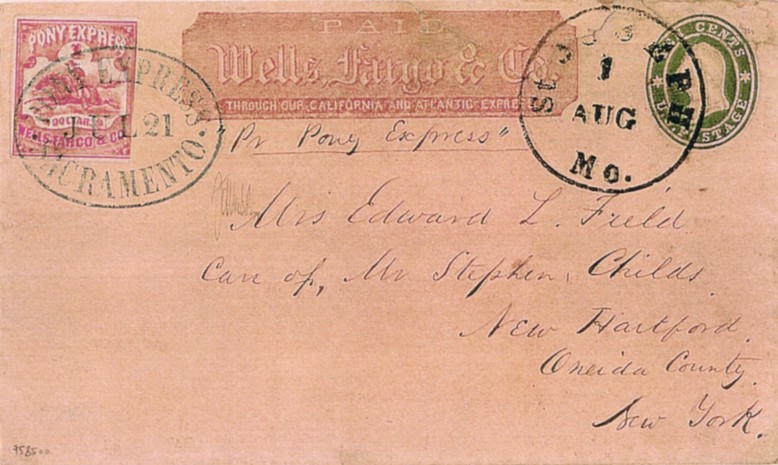 PONY EXPRESS
DOLLAR
WELLS FARGO & Co.
PONY EXPRESS.
JUL 21
SACRAMENTO.
PAID
Wells, Fargo & Co.
THROUGH OUR CALIFORNIA AND ATLANTIC EXPRESS
St JOSEPH
1
AUG
Mo.
CENTS
U.S. POSTAGE
"Pr Pony Express"
Mrs Edward L. Field
Care of, Mr Stephen Childs.
New Hartford.
Oneida County.
New York.